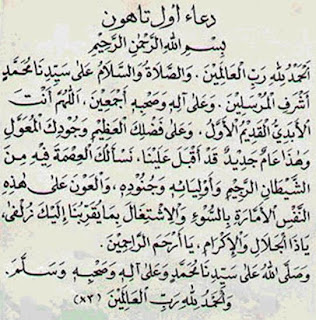 دعاء اول تاهون
بِسْمِ اللهِ الرَّحْمٰنِ الرَّحِيْمِ
اَلْحَمْدُ لِلّٰهِ رَبِّ الْعَالَمِيْنَ. وَالصَّلَاةُ وَالسَّلَامُ عَلَى سَيِّدِنَا مُحَمَّدٍ
أَشْرَفِ الْمُرْسَلِيْنَ. وَعَلَى آلِهِ وَصَحْبِهِ أَجْمَعِيْنَ، اَللّٰهُمَّ أَنْتَ
الْأَبَدِيُّ الْقَدِيْمُ الْأَوَّلُ. وَعَلَى فَضْلِكَ الْعَظِيْمِ وَجُوْدِكَ الْمُعَوَّلِ
وَهٰذَا عَامٌ جَدِيْدٌ قَدْ أَقْبَلَ عَلَيْنَا، نَسْأَلُكَ الْعِصْمَةَ فِيْهِ مِنَ
الشَّيْطَانِ الرَّجِيْمِ وَأَوْلِيَائِهِ وَجُنُوْدِهِ، وَالْعَوْنَ عَلَى هٰذِهِ
النَّفْسِ الْأَمَّارَةِ بِالسُّوْءِ وَالْاِشْتِغَالَ بِمَا يُقَرِّبُنَا إِلَيْكَ زُلْفَى،
يَا ذَا الْجَلَالِ وَالْإِكْرَامِ، يَا أَرْحَمَ الرَّاحِمِيْنَ.
وَصَلَّى اللهُ عَلَى سَيِّدِنَا مُحَمَّدٍ وَعَلَى آلِهِ وَصَحْبِهِ وَسَلَّمَ.
وَالْحَمْدُ لِلّٰهِ رَبِّ الْعَالَمِيْنَ (٨٣)